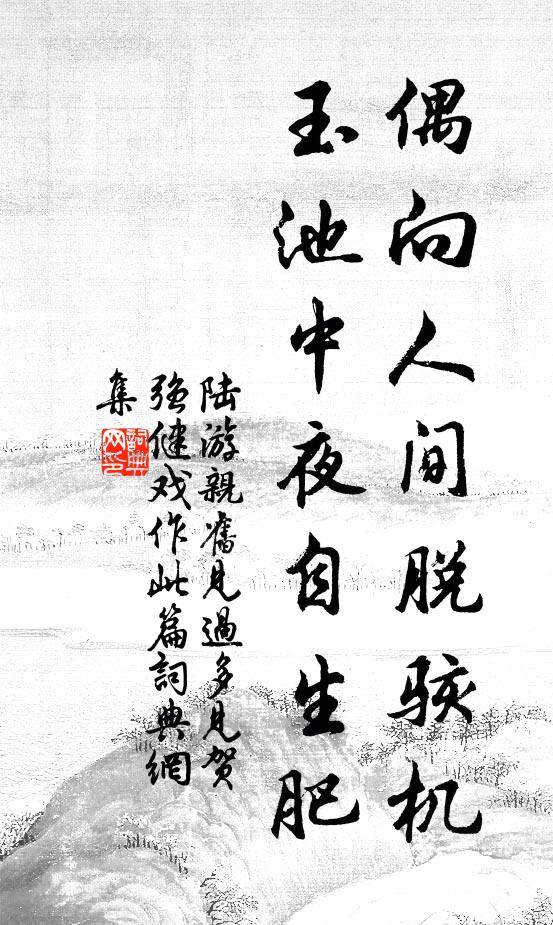 偶向人间脱骇机
玉池中夜自生肥
陆游親舊見過多見贺
强健戏作此篇詞典網
集
詞典
网印